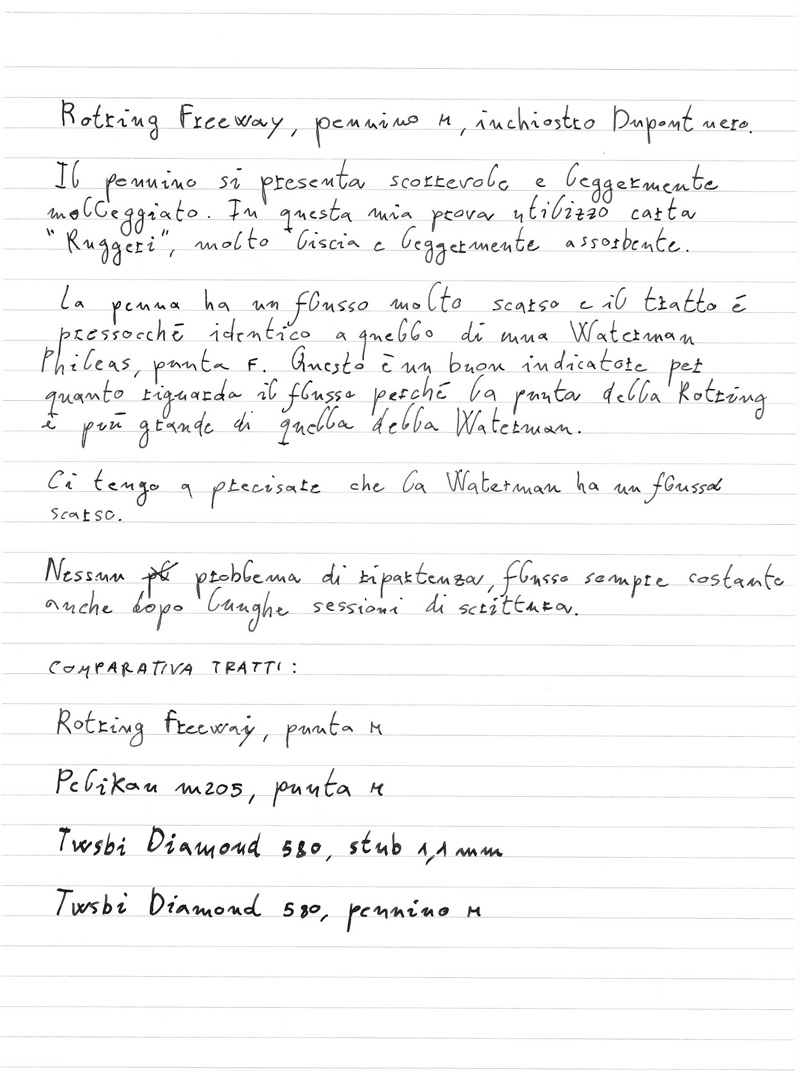 Rotring Freeway, pennino M, inchiostro Dupont nero.
Il pennino si presenta scorrevole e leggermente
molleggiato. In questa mia prova utilizzo carta
"Ruggeri", molto liscia e leggermente assorbente.
La penna ha un flusso molto scarso e il tratto è
pressocchè identico a quello di una Waterman
Phileas, punta F. Questo è un buon indicatore per
quanto riguarda il flusso perché la punta della Rotring
è più grande di quella della Waterman.
Ci tengo a precisare che la Waterman ha un flusso
scarso.
Nessun problema di ripartenza, flusso sempre costante
anche dopo lunghe sessioni di scrittura.
COMPARATIVA TRATTI:
Rotring Freeway, punta M
Pelikan m205, punta M
Twsbi Diamond 580, stub 1,1 mm
Twsbi Diamond 580, pennino M